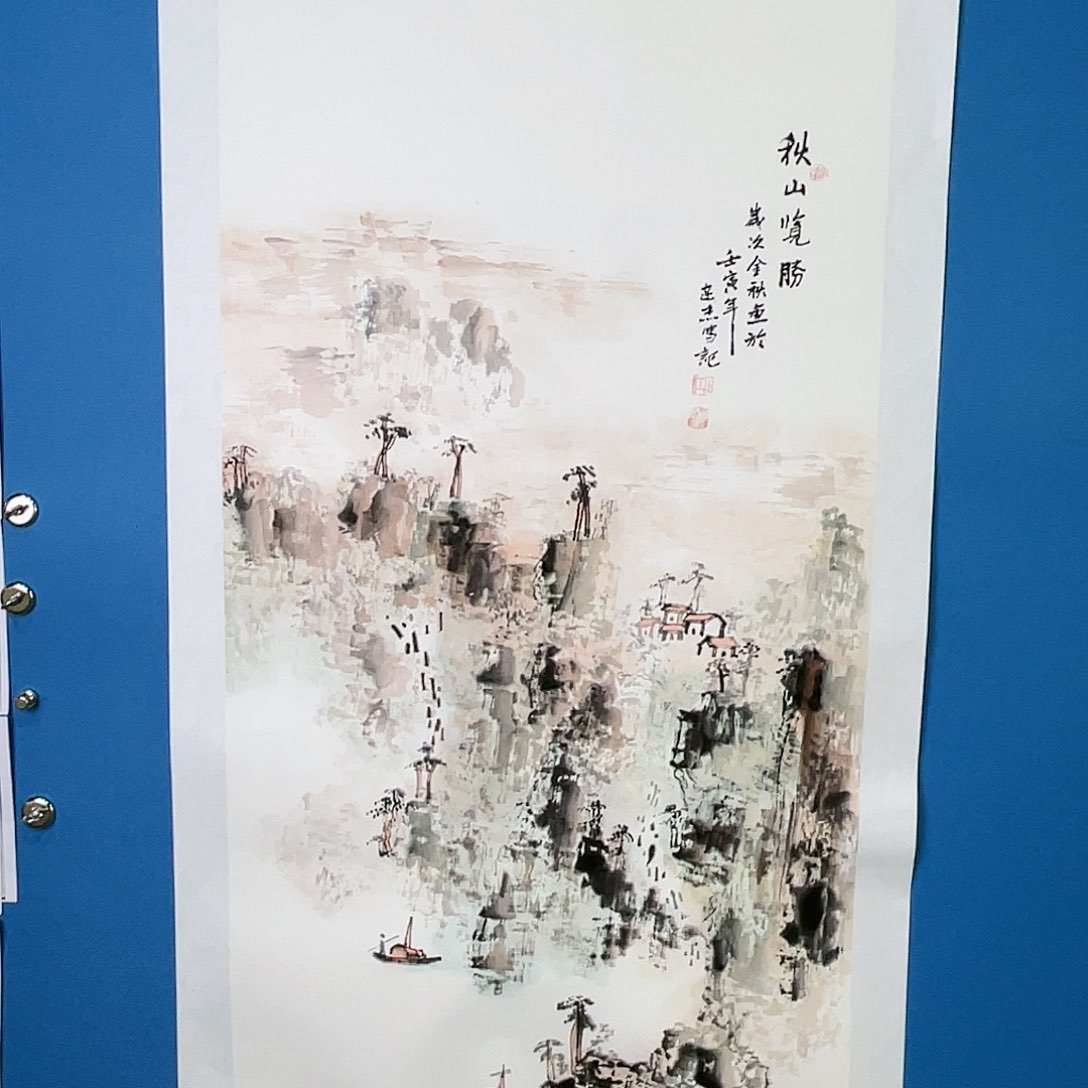 秋山览勝
歲次金秋画於
壬寅年
杰写記